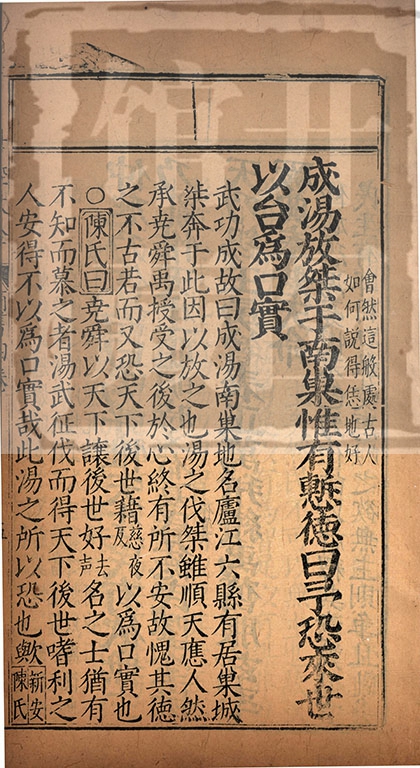 會然這般處古人
如何說得恁地好
成湯放桀于南巢惟有慙德曰予恐來世
以台爲口實
武功成故曰成湯南巢地名廬江六縣有居巢城
桀奔于此因以放之也湯之伐桀雖順天應人然
承堯舜禹授受之後於心終有所不安故愧其德
之不古若而又恐天下後世藉慈夜反以爲口實也
○陳氏曰堯舜以天下讓後世好去聲名之士猶有
不知而慕之者湯武征伐而得天下後世嗜利之
人安得不以爲口實哉此湯之所以恐也歟新安陳氏